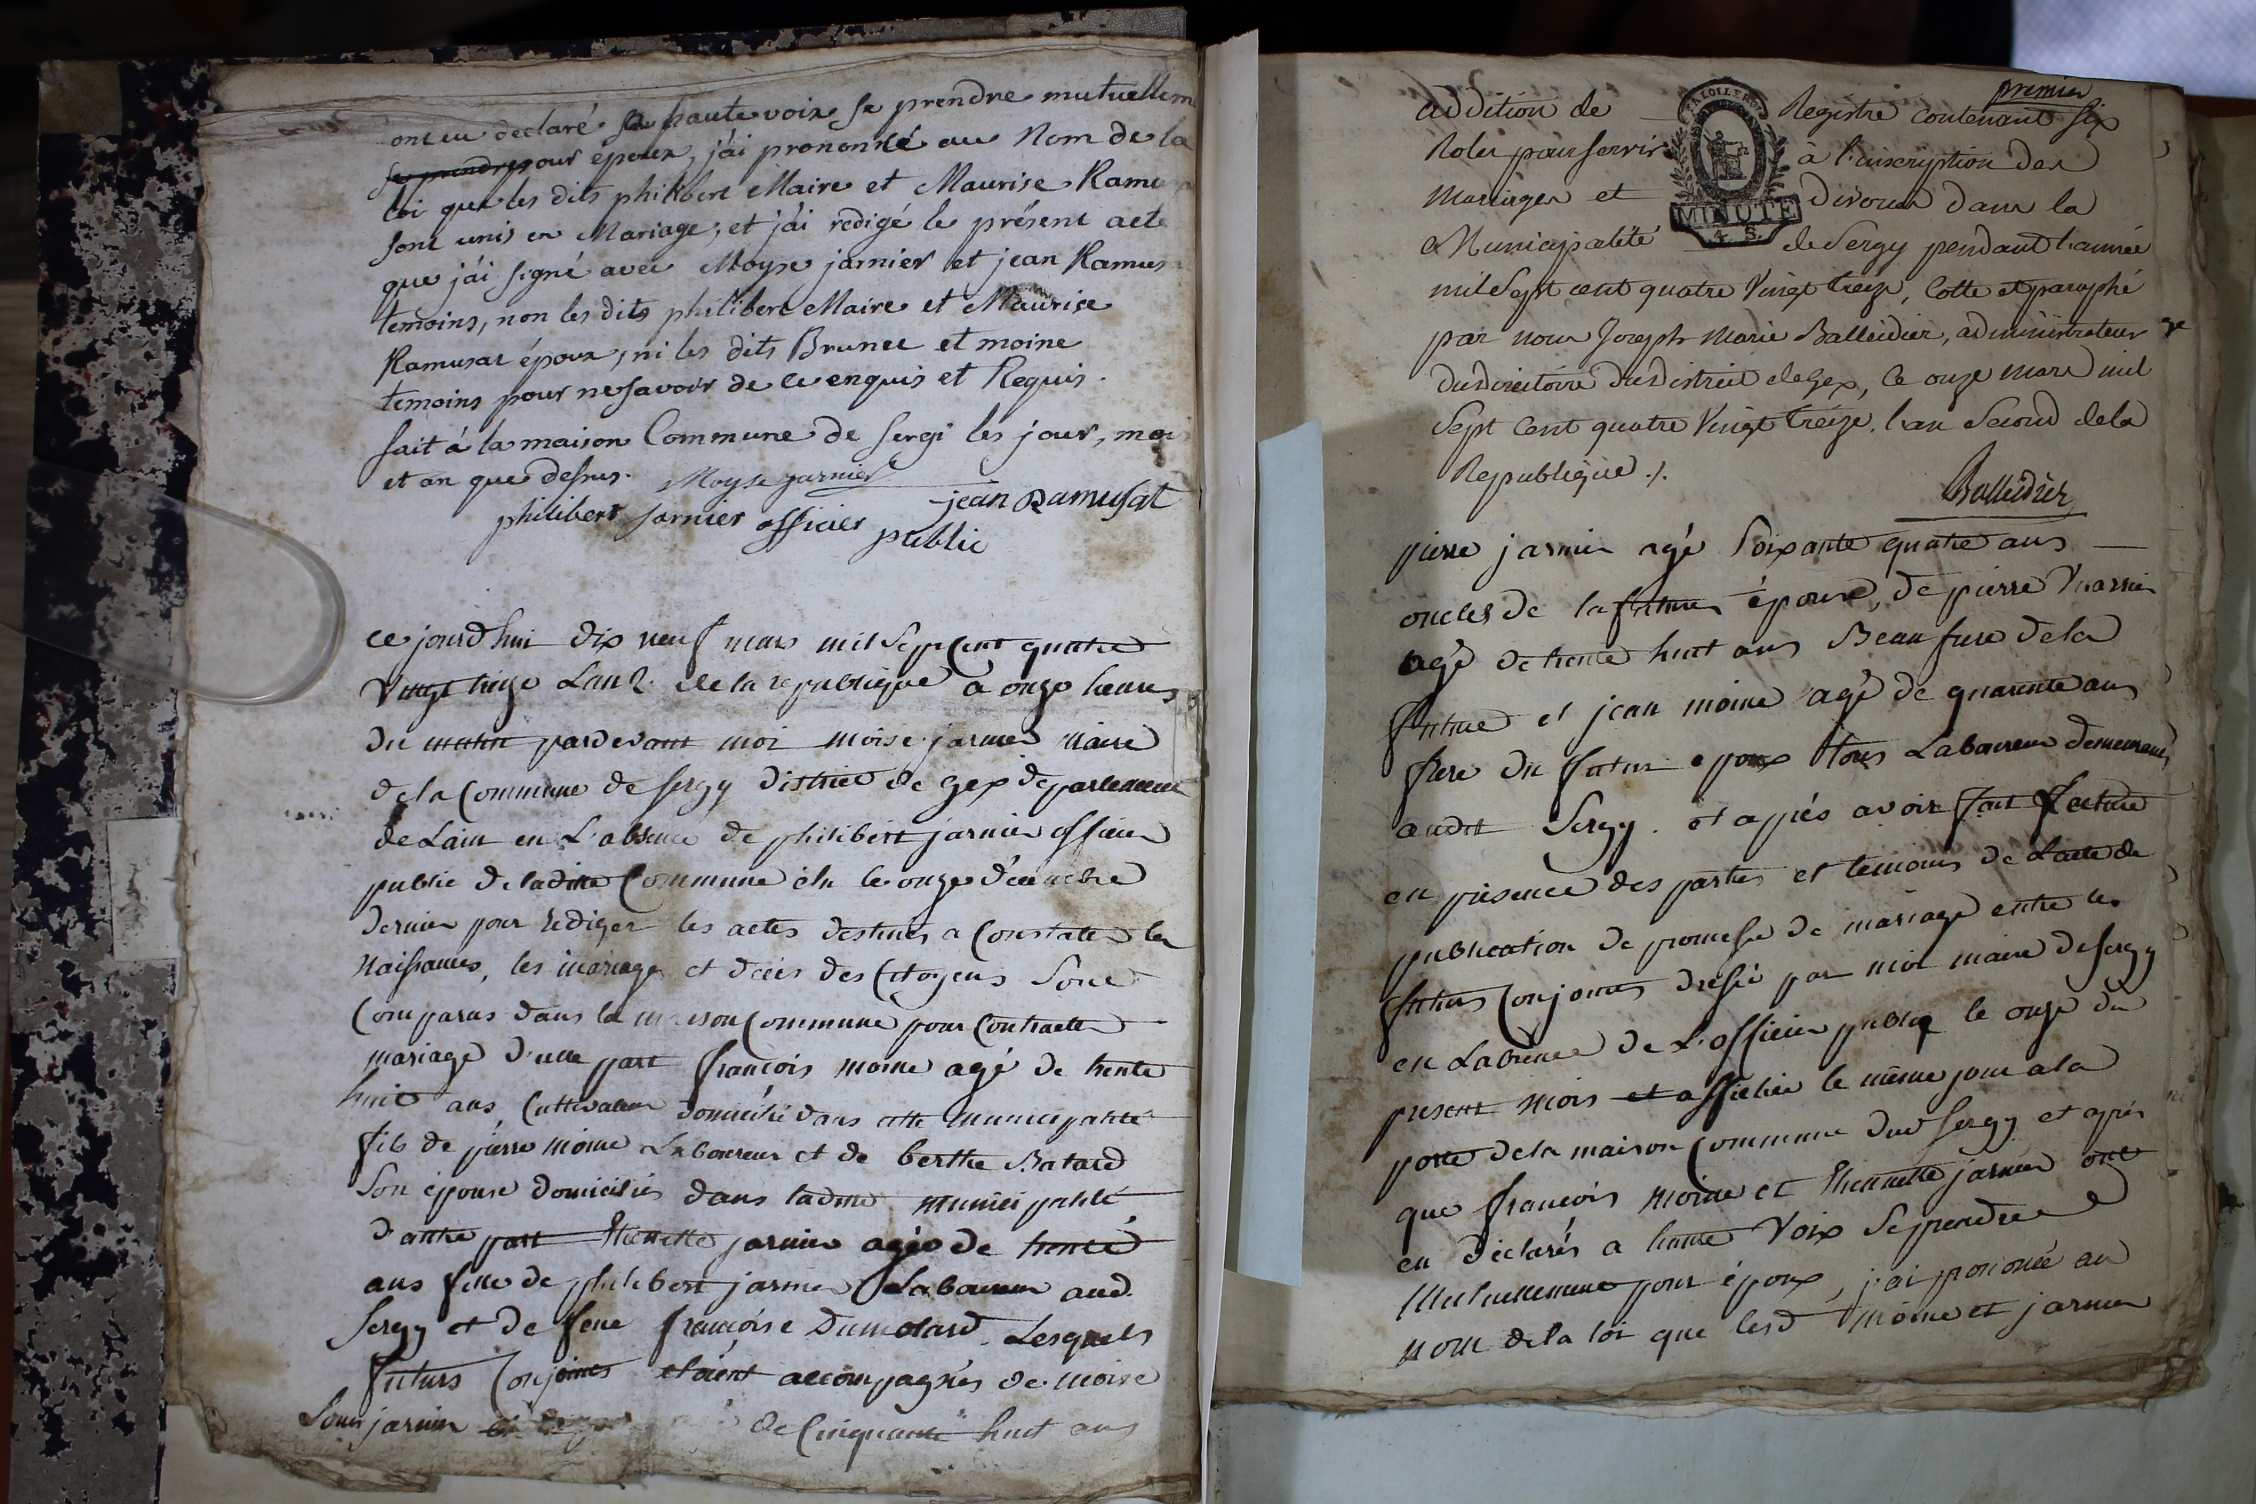 ont eu declaré à haute voix se prendre mutuellem
se prendre pour époux, j'ai prononcé au Nom de la
loi que les dits philibert Maire et Maurise Ramu
sont unis en Mariage, et j'ai rédigé le présent acte
que j'ai signé avec Moyse jarnier et jean Ramus
temoins, non les dits philibert Maire et Maurise
Ramusat époux, ni les dits Brunet et moine
temoins pour ne savoir de ce enquis et Requis.
fait à la maison Commune de Sergi les jour, moi
et an que dessus. Moyse jarnier
jean Ramusat
philibert jarnier officier public
ce jourdhui dix neuf mars mil Sept Cent quatre
Vingt treize Lan 2. de la republique à onze heures
du matin pardevant moi moise jarnier maire
de la Commune de Sergy district de gex departement
de Lain en L'absence de philibert jarnier officier
public de ladite Commune élu le onze décembre
dernier pour rediger les actes destinés a Constater les
Naissances, les mariages et décès des Citoyens Sont
Comparus dans la maison Commune pour Contracter
mariage d'une part françois moine agé de trente
huit ans Cultivateur domicilié dans cette municipalité
fils de pierre moine Laboureur et de berthe Batard
Son épouse domiciliés dans ladite municipalité
d'autre part Etiennette jarnier agée de trente
ans fille de philibert jarnier Laboureur aud.
Sergy et de feue françoise Dumolard Lesquels
futurs Conjoints etoient accompagnés de moise
jarnier de Cinquante huit ans
premier
addition de Registre contenant six
Roles pour servir à l'inscription des
Mariages et divorces dans la
MINUTE
4. S.
Municipalité de Sergy pendant l'année
mil Sept cent quatre Vingt treize, Cotté et paraphé
par nous Joseph Marie Balleidier, administrateur
du directoire du district de Gex, le onze mars mil
Sept Cent quatre Vingt treize. l'an Second de la
Republique ./.
Balleidier
pierre jarnier agé Soixante quatre ans
oncles de la future épouse, de pierre
agé de trente huit ans Beau frere de la
future et jean moine agé de quarente ans
frere du futur epoux tous Laboureur demeurants
audit Sergy. et après avoir fait Lecture
en présence des parties et temoins de Lacte de
publication de promesse de mariage entre les
futurs Conjoints dressé par moi maire de Sergy
en Labsence de L'officier public le onze du
present mois et affichée le même jour a la
porte de la maison Commune dud Sergy et après
que françois moine et Etiennette jarnier ont
eu déclarés a haute Voix Se prendre
Mutuellement pour époux, j'ai prononcé au
nom de la loi que lesd moine et jarnier